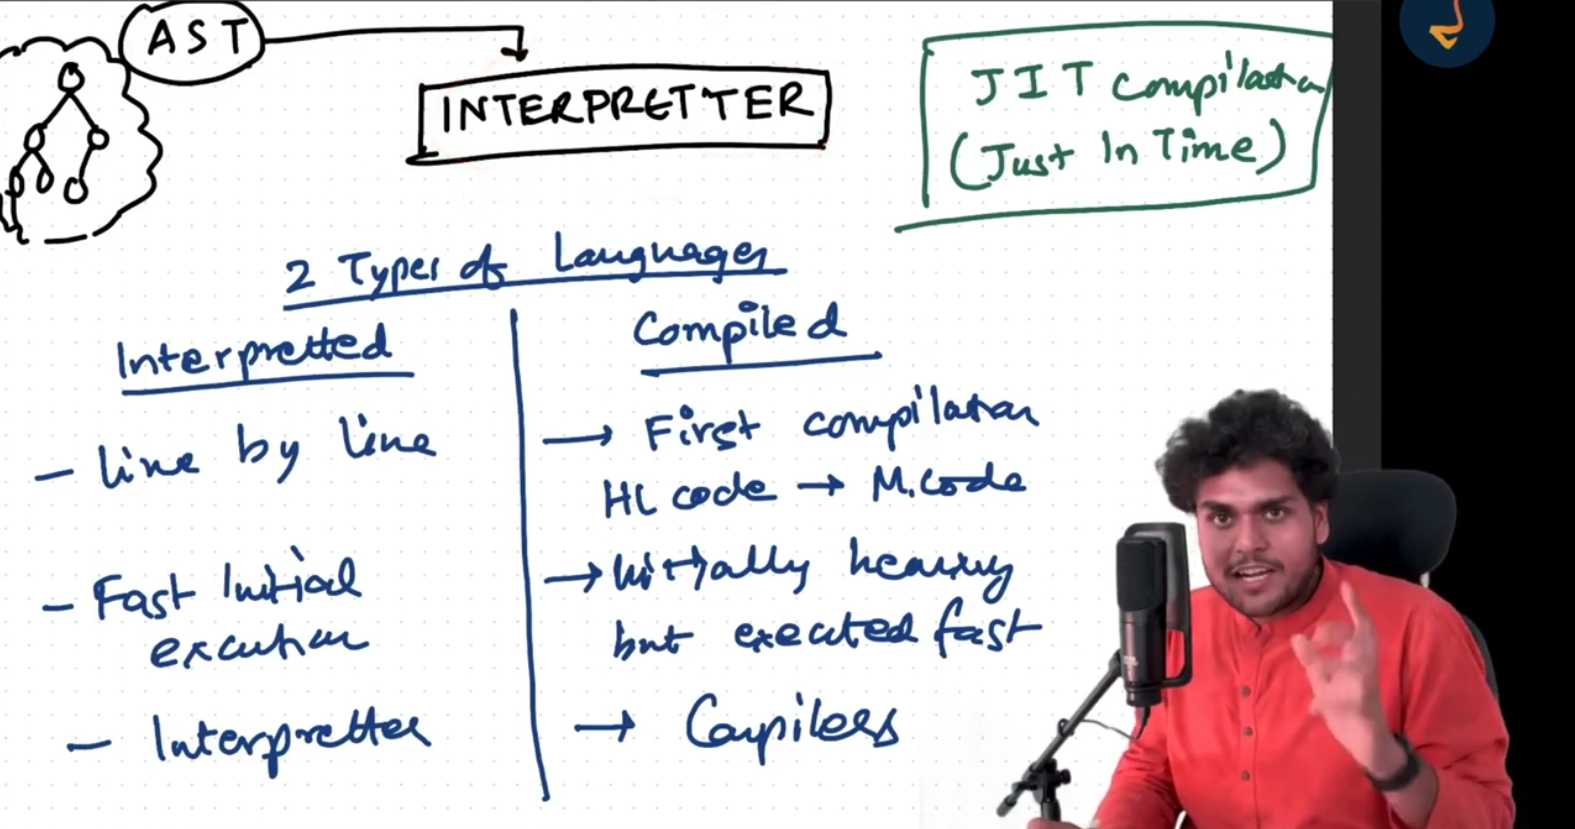 AST
INTERPRETTER
JIT Compilation
(Just In Time)
2 Types of Languages
Interpretted
- line by line
- Fast Initial
execution
- Interpretter
Compiled
→ First compilation
HL code → M.code
→ Initially heavy
but executed fast
→ Compilers